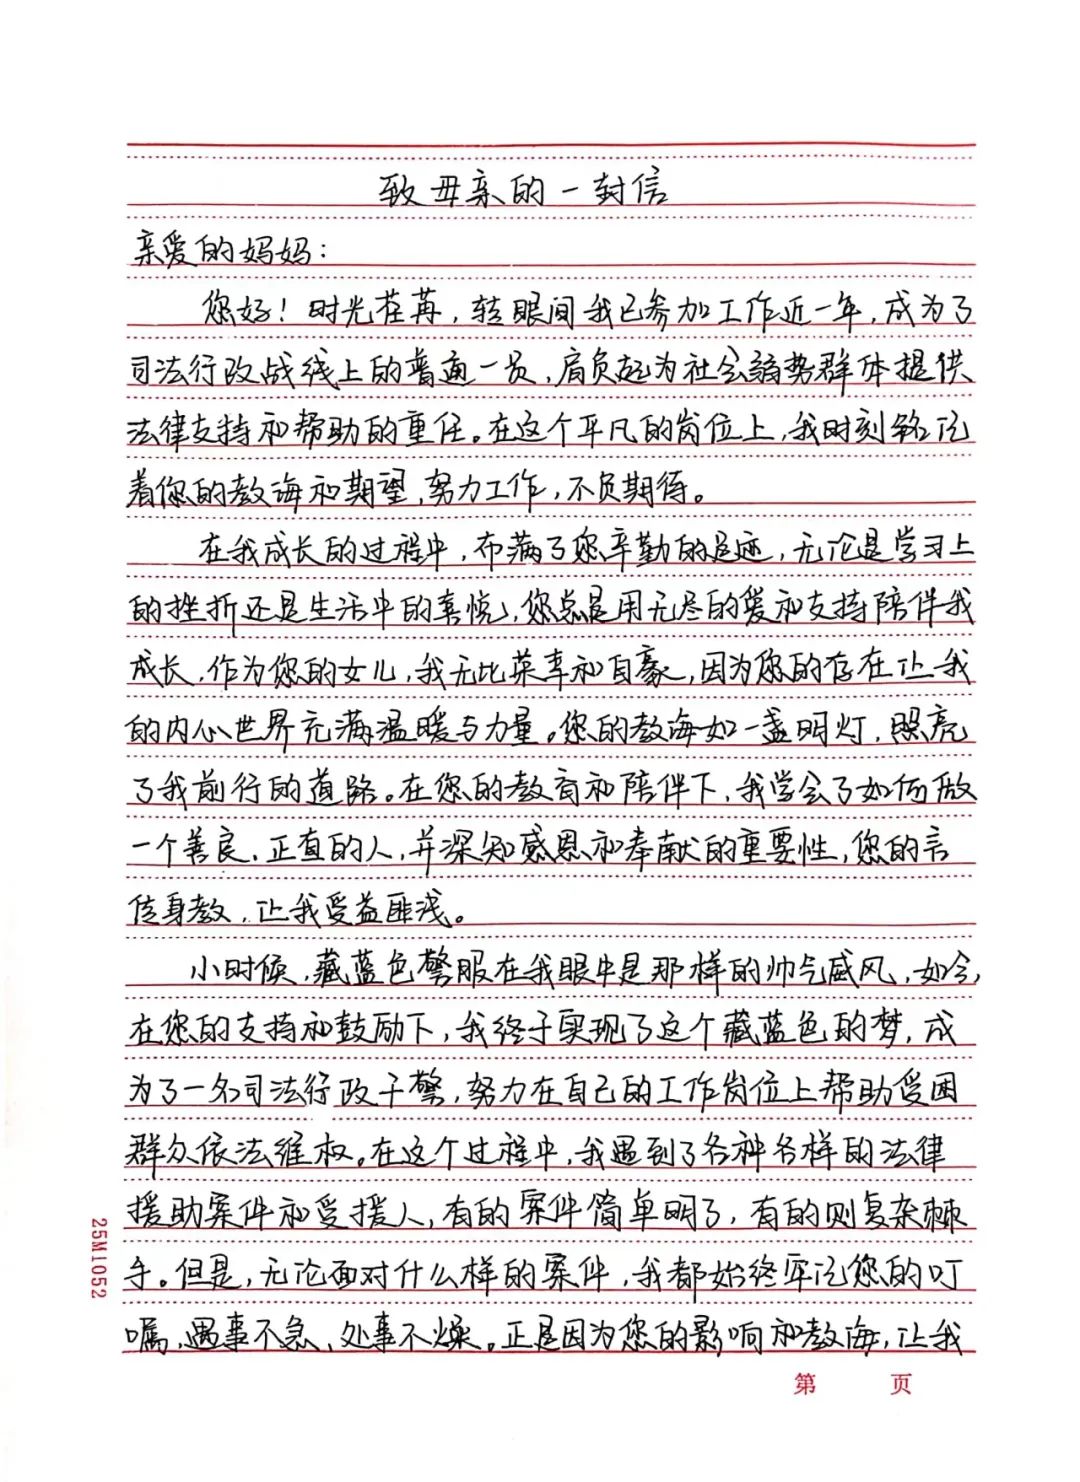 致母亲的一封信
亲爱的妈妈：
您好！时光荏苒，转眼间我已参加工作近一年，成为了
司法行政战线上的普通一员，肩负起为社会弱势群体提供
法律支持和帮助的重任。在这个平凡的岗位上，我时刻铭记
着您的教诲和期望，努力工作，不负期待。
在我成长的过程中，布满了您辛勤的足迹，无论是学习上
的挫折还是生活中的喜悦，您总是用无尽的爱和支持陪伴我
成长，作为您的女儿，我无比荣幸和自豪，因为您的存在让我
的内心世界充满温暖与力量。您的教诲如一盏明灯，照亮
了我前行的道路。在您的教育和陪伴下，我学会了如何做
一个善良、正直的人，并深知感恩和奉献的重要性，您的言
传身教，让我受益匪浅。
小时候，藏蓝色警服在我眼中是那样的帅气威风，如今，
在您的支持和鼓励下，我终于实现了这个藏蓝色的梦，成
为了一名司法行政干警，努力在自己的工作岗位上帮助受困
群众依法维权。在这个过程中，我遇到了各种各样的法律
援助案件和受援人，有的案件简单明了，有的则复杂棘
手。但是，无论面对什么样的案件，我都始终牢记您的叮
嘱，遇事不急、处事不燥。正是因为您的影响和教诲，让我
第 页
25M1052